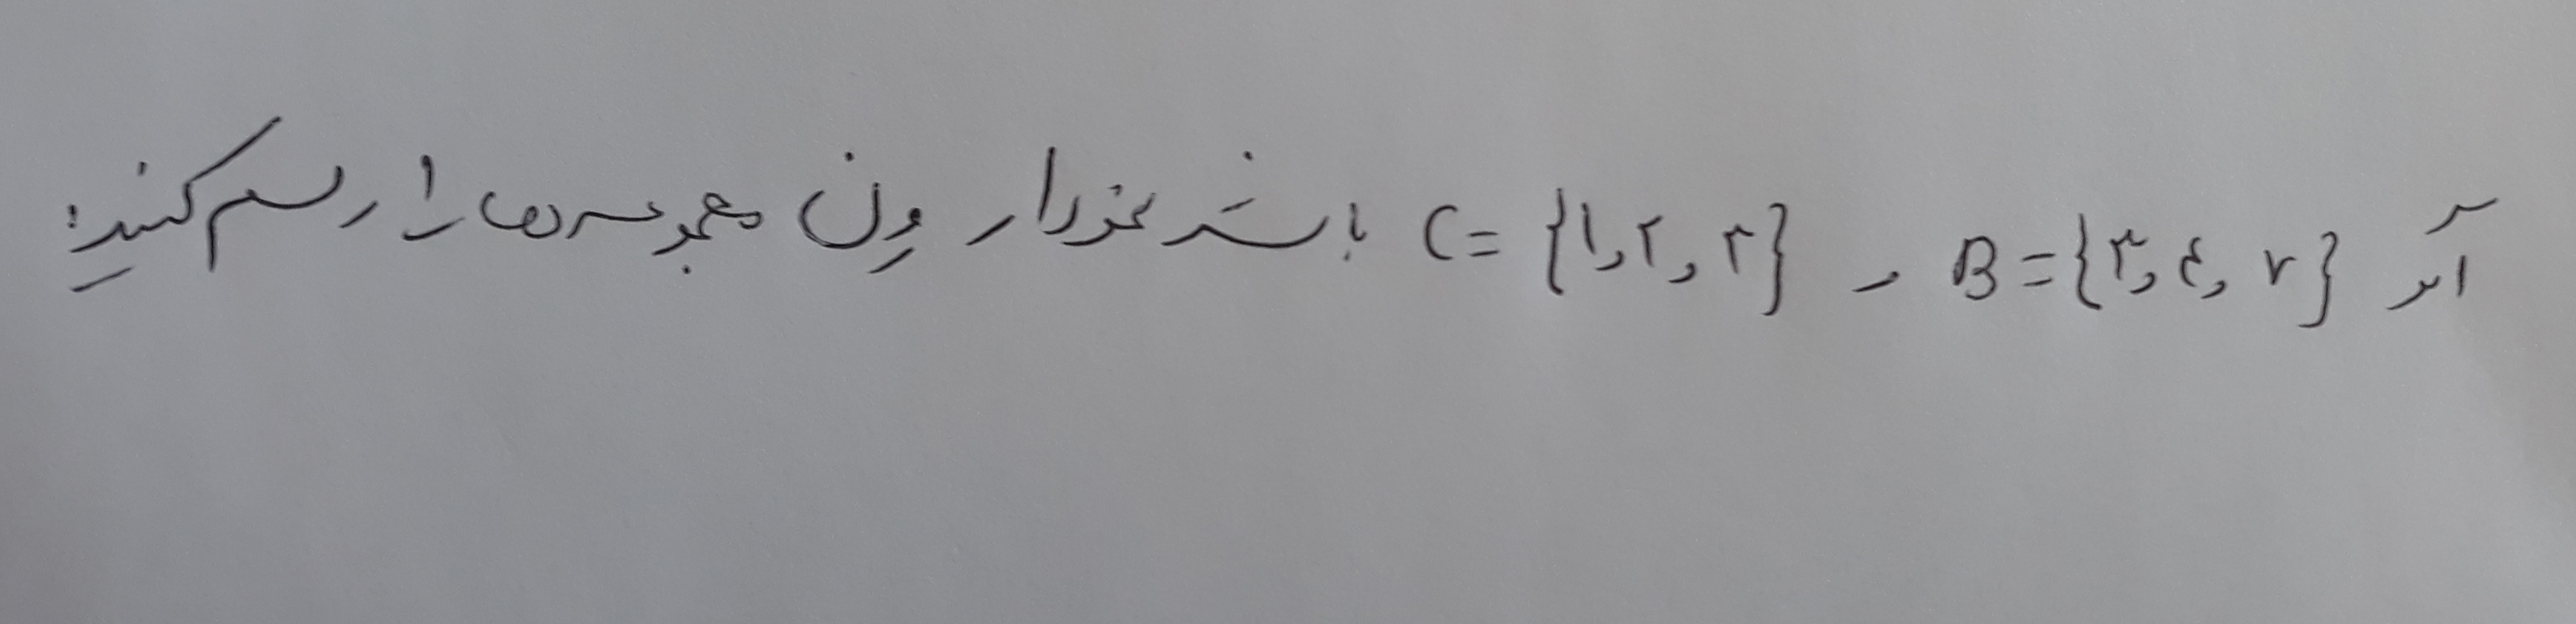 اگر B = {۳, ۴, ۲} و C = {۱, ۲, ۳} باشد نمودار ون مجموعه‌ها را رسم کنید: